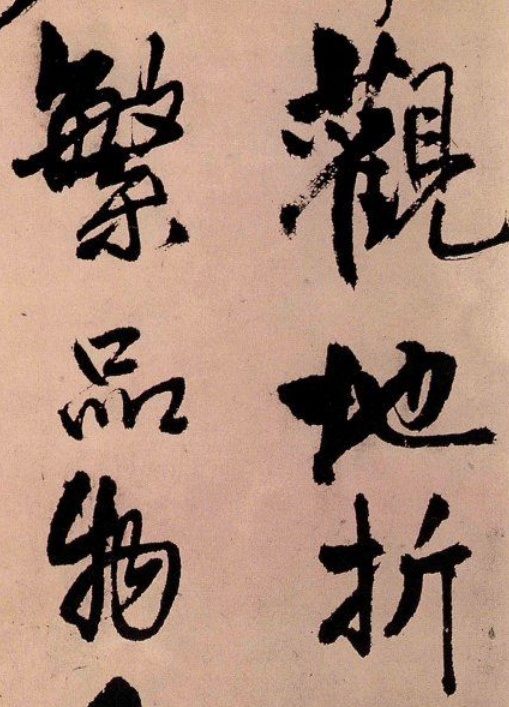 觀地折
繁品物